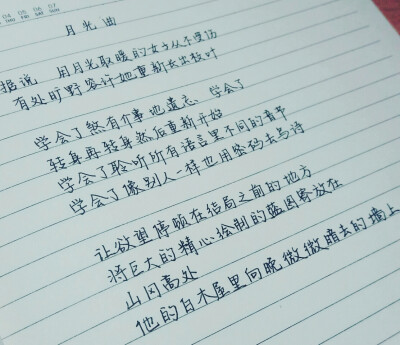 月光曲
据说 用月光取暖的女子从不受伤
有处旷野容许她重新长出枝叶
学会了煞有介事地遗忘 学会了
转身再转身然后重新开始
学会了聆听所有语言里不同的音节
学会了像别人一样也用密码去写诗
让欲望停顿在结局之前的地方
将巨大的精心绘制的蓝图寄放在
山冈高处
他的白木屋里向晚微微暗去的墙上